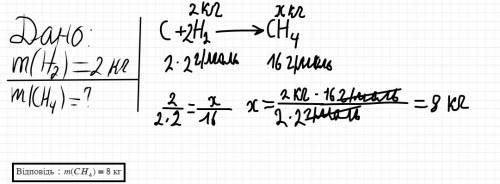 Дано:
m(H₂)=2 кг
m(CH₄)=?
2 кг x кг
C + 2H₂ ⟶ CH₄
2·2 г/моль 16 г/моль
2/2·2 = x/16 x = 2 кг · 16 г/моль / 2·2 г/моль = 8 кг
Відповідь : m(CH₄) = 8 кг